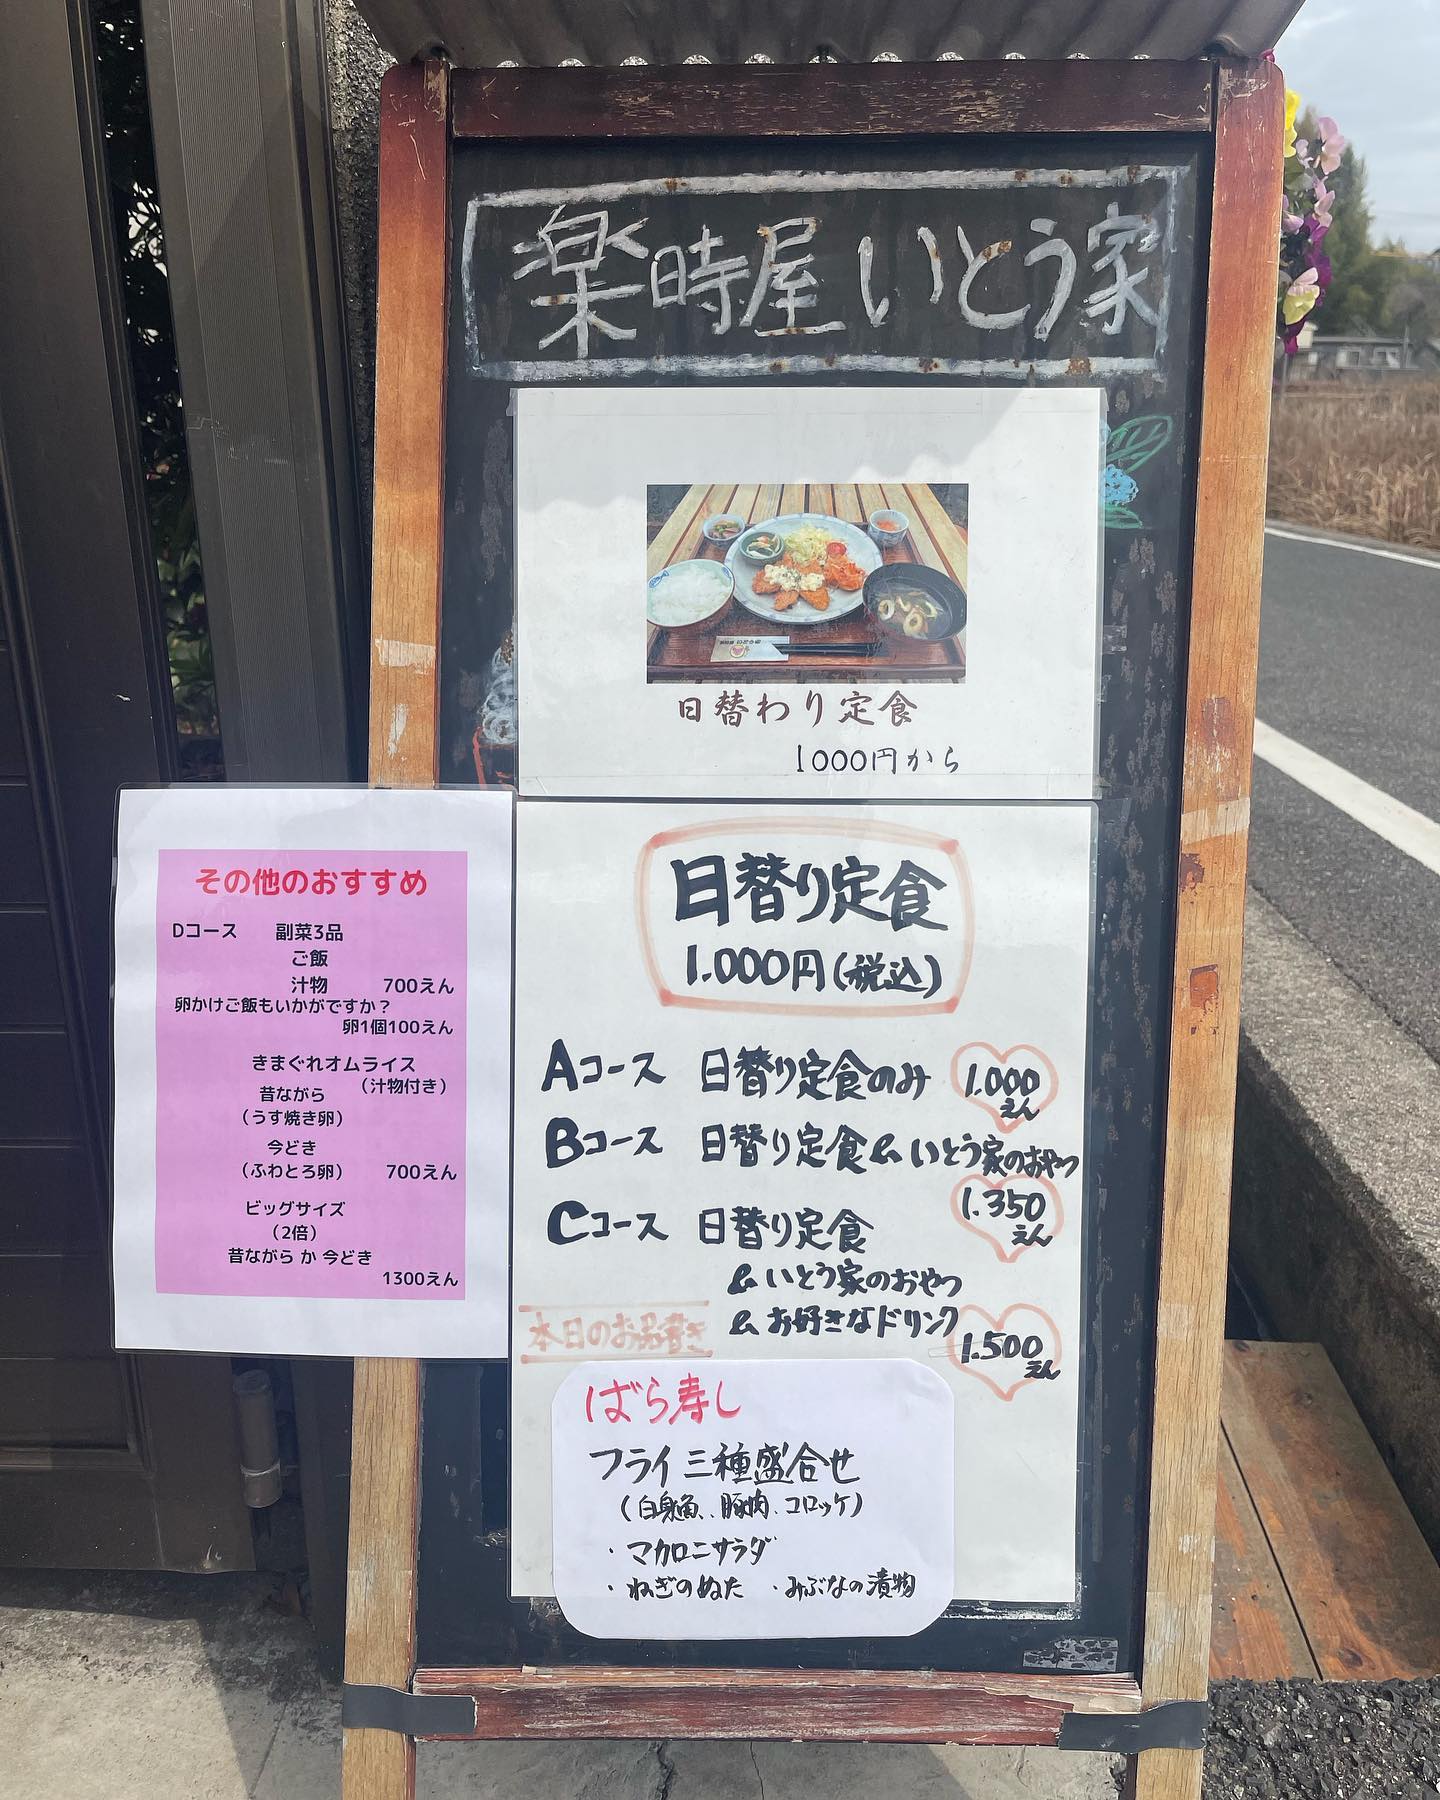 楽時屋 いとう家
日替わり定食
1000円から
日替り定食
1.000円(税込)
Aコース 日替り定食のみ 1.000えん
Bコース 日替り定食& いとう家のおやつ
1.350えん
Cコース 日替り定食
& いとう家のおやつ
& お好きなドリンク
1.500えん
本日のお品書き
ばら寿し
フライ三種盛合せ
(白身魚、豚肉、コロッケ)
・マカロニサラダ
・ねぎのぬた ・みぶなの漬物
その他のおすすめ
Dコース 副菜3品
ご飯
汁物 700えん
卵かけご飯もいかがですか?
卵1個100えん
きまぐれオムライス
(汁物付き)
昔ながら
(うす焼き卵)
今どき
(ふわとろ卵) 700えん
ビッグサイズ
(2倍)
昔ながら か 今どき
1300えん